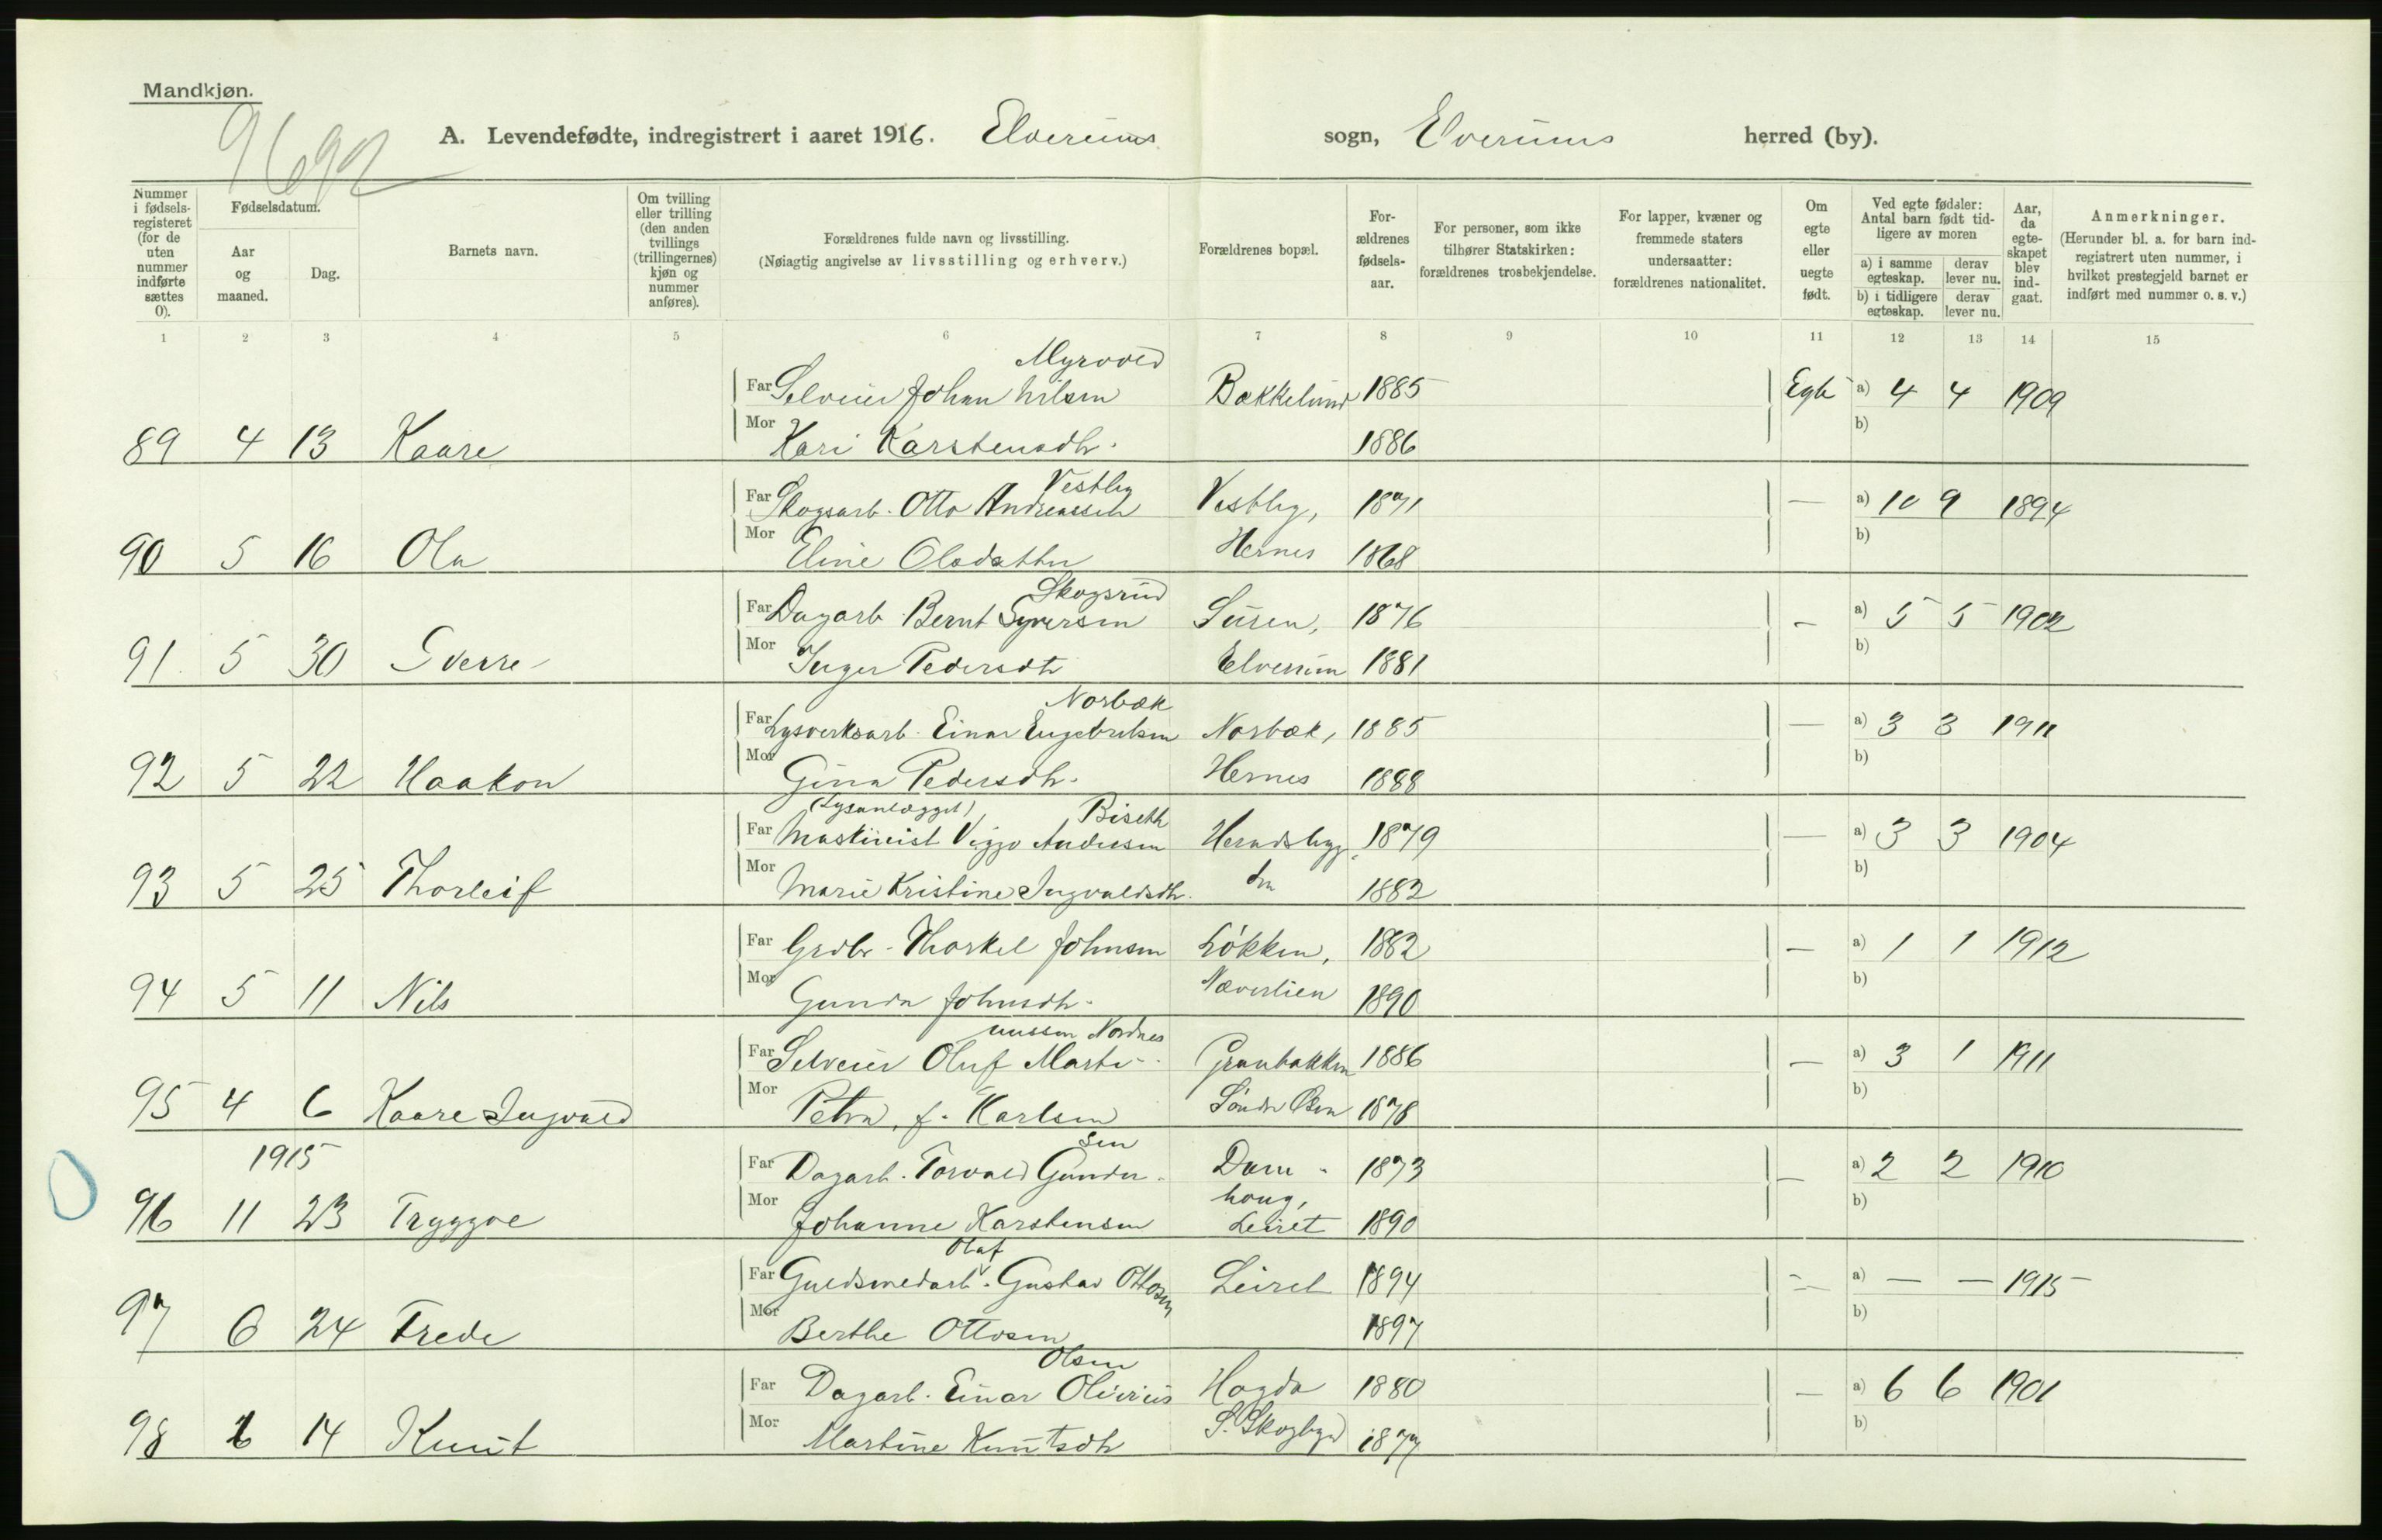 Mandkjøn.
9692
A. Levendefødte, indregistrert i aaret 1916. Elverums sogn, Elverums herred (by).
Nummer i fødselsregisteret (for de uten nummer indførte sættes 0).
Fødselsdatum.
Aar og maaned.
Dag.
Barnets navn.
Om tvilling eller trilling (den anden tvillings (trillingernes) kjøn og nummer anføres).
Forældrenes fulde navn og livsstilling.
(Nøiagtig angivelse av livsstilling og erhverv.)
Forældrenes bopæl.
Forældrenes fødselsaar.
For personer, som ikke tilhører Statskirken: forældrenes trosbekjendelse.
For lapper, kvæner og fremmede staters undersaatter: forældrenes nationalitet.
Om egte eller uegte født.
Ved egte fødsler: Antal barn født tidligere av moren
a) i samme egteskap. derav lever nu.
b) i tidligere egteskap. derav lever nu.
Aar, da egteskapet blev indgaat.
Anmerkninger.
(Herunder bl. a. for barn indregistrert uten nummer, i hvilket prestegjeld barnet er indført med nummer o. s. v.)
1 2 3 4 5 6 7 8 9 10 11 12 13 14 15
Myrvold
Far Selveier Johan Nilsen Bakkelund 1885 Egte a) 4 4 1909
89 4 13 Kaare Mor Kari Karstensdtr. 1886 b)
Vestby
Far Skogsarb. Otto Andreassen Vestby, 1871 — a) 10 9 1894
90 5 16 Ola Mor Eline Olsdatter Hernes 1868 b)
Skogsrud
Far Dagarb Bernt Syversen Suren, 1876 — a) 5 5 1902
91 5 30 Sverre Mor Inger Pedersdtr Elverum 1881 b)
Norbæk
Far Lysverksarb. Einar Engebretsen Norbæk, 1885 — a) 3 3 1911
92 5 22 Haakon Mor Gina Pedersdtr. Hernes 1888 b)
(Lysanlægget) Biseth
Far Maskinist Viggo Andersen Heradsbygden 1879 — a) 3 3 1904
93 5 25 Thorleif Mor Marie Kristine Ingvaldsdtr. 1882 b)
Far Grdbr. Thorkel Johnsen Løkken, 1882 — a) 1 1 1912
94 5 11 Nils Mor Gunda Johnsdtr. Næverlien 1890 b)
Nordnes
Far Selveier Oluf Martinussen Granbakken 1886 — a) 3 1 1911
95 4 6 Kaare Ingvald Mor Petra, f. Karlsen Søndre Osen 1878 b)
1915 sen
Far Dagarb. Torvald Gunder- Damhaug, 1873 — a) 2 2 1910
96 11 23 Tryggve Mor Johanne Karstensen Leiret 1890 b)
Olaf
Far Guldsmedarb. Gustav Ottosen Leiret 1894 — a) — — 1915
97 6 24 Frede Mor Berthe Ottosen 1897 b)
Olsen
Far Dagarb. Einar Olivius Hagda 1880 — a) 6 6 1901
98 6 14 Knut Mor Martine Knutsdtr S. Skogbygd 1877 b)